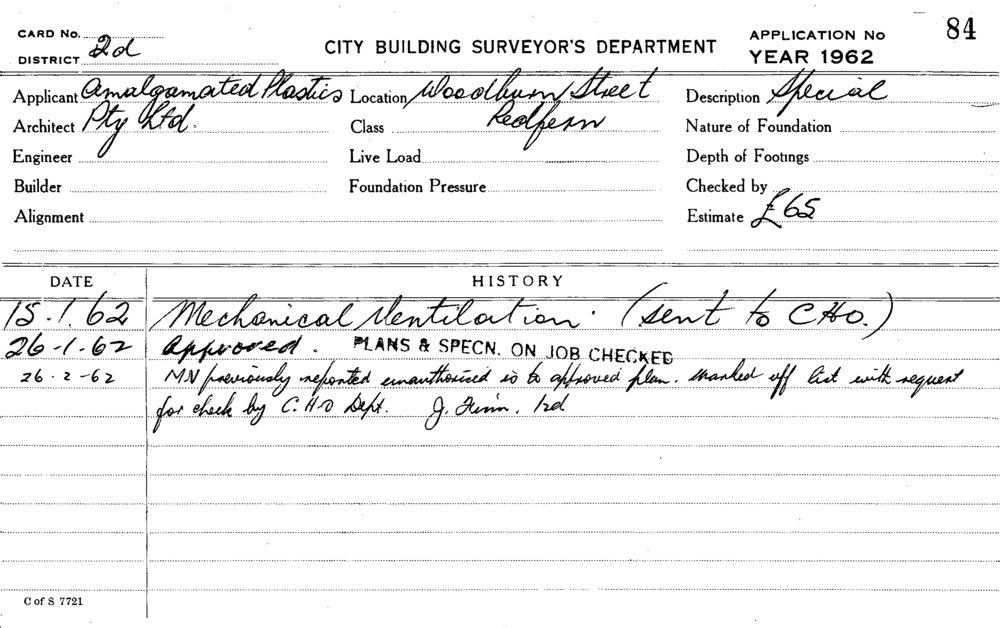 CARD No.
DISTRICT 2d
CITY BUILDING SURVEYOR'S DEPARTMENT
APPLICATION No 84
YEAR 1962
Applicant Amalgamated Plastics Location Woodburn Street Description Special
Architect Pty Ltd. Class Redfern Nature of Foundation
Engineer Live Load Depth of Footings
Builder Foundation Pressure Checked by
Alignment Estimate £65
DATE HISTORY
15.1.62 Mechanical Ventilation. (sent to CHO.)
26-1-62 Approved. PLANS & SPECN. ON JOB CHECKED
26.2-62 MV previously reported unauthorised is to approved plan. Marked off list with request
for check by C.H.O Dept. J.
C of S 7721